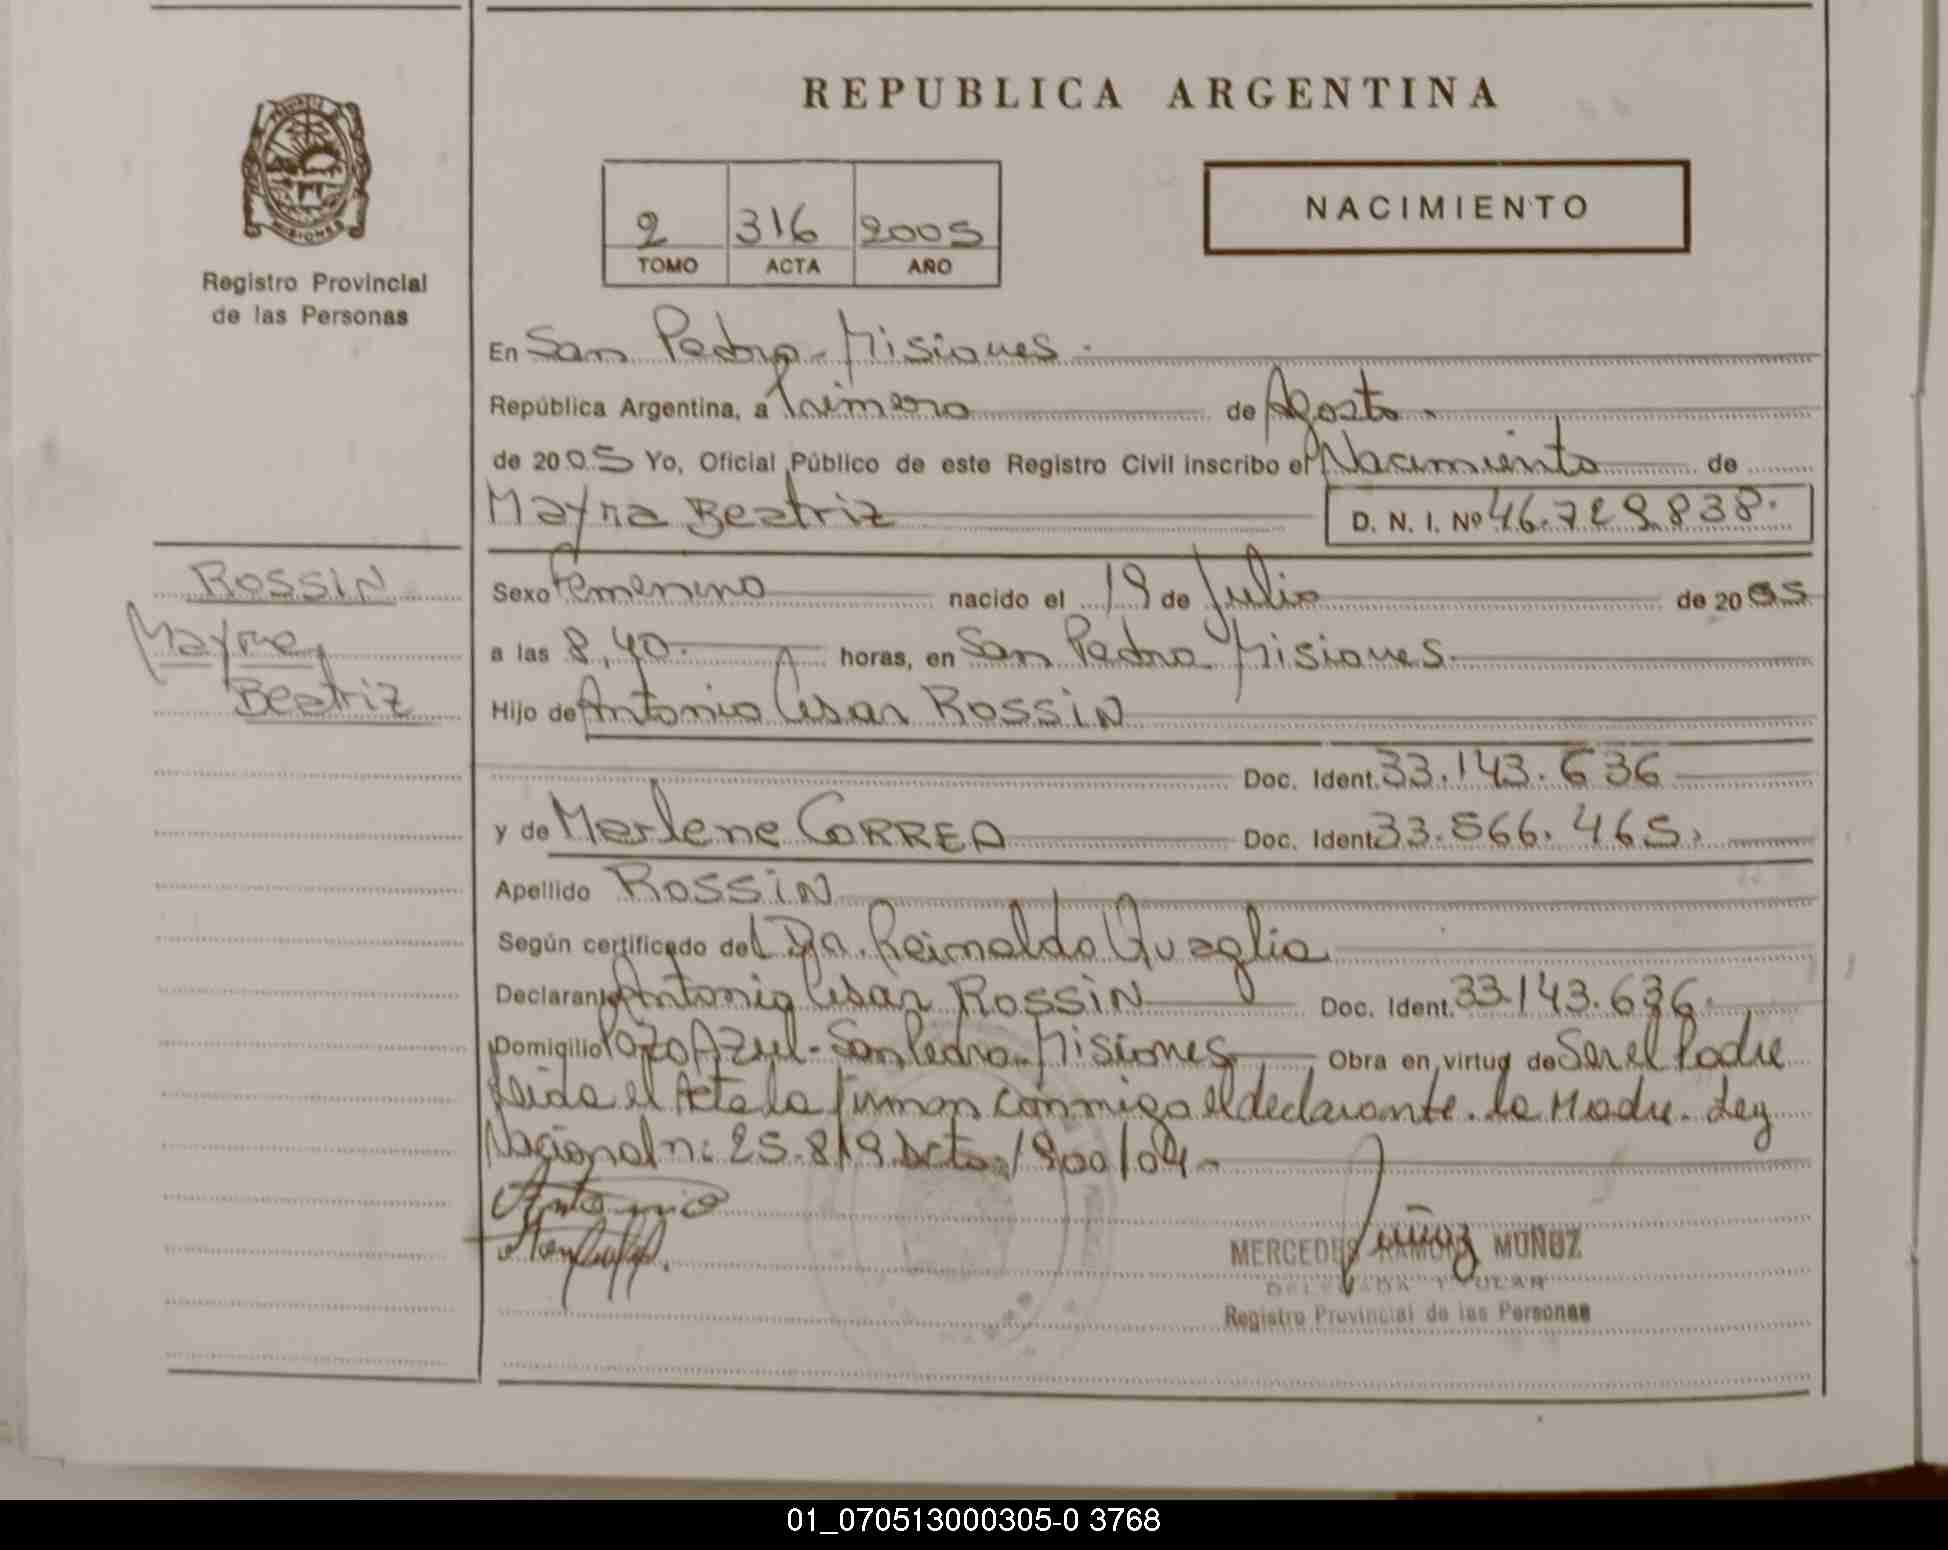 REPUBLICA ARGENTINA
MISIONES
Registro Provincial
de las Personas
2 316 2005
TOMO ACTA AÑO
NACIMIENTO
En San Pedro - Misiones.
República Argentina, a Primero de Agosto.
de 2005 Yo, Oficial Público de este Registro Civil inscribo el Nacimiento de
Mayra Beatriz D. N. I. Nº 46.729.838.
ROSSIN
Mayra
Beatriz
Sexo Femenino nacido el 19 de Julio de 2005
a las 8,40. horas, en San Pedro Misiones.
Hijo de Antonio Cesar ROSSiN
Doc. Ident. 33.143.636
y de Marlene CORREA Doc. Ident. 33.566.465.
Apellido ROSSiN
Según certificado del Dr. Reinaldo Quaglia
Declarante Antonio Cesar ROSSiN Doc. Ident. 33.143.636.
Domicilio Pozo Azul - San Pedro - Misiones Obra en virtud de Ser el Padre
Leida el Acta la firman conmigo el declarante. la Madre. Ley
Nacional n: 25.819 Dcto. 1900/04.-
Antonio
Muñoz
MERCEDES RAMONA MUÑOZ
DELEGADA TITULAR
Registro Provincial de las Personas
01_070513000305-0 3768